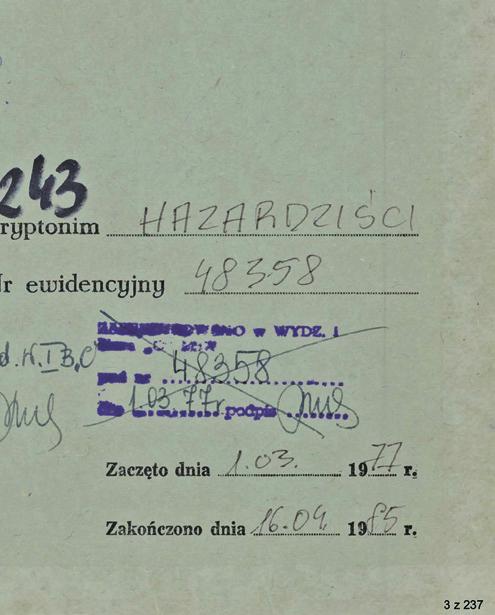 243
ryptonim HAZARDZIŚCI
Nr ewidencyjny 48358
W WYDZ. I
48358
1.03 77r podpis
Zaczęto dnia 1.03. 1977 r.
Zakończono dnia 16.04 1985 r.
3 z 237